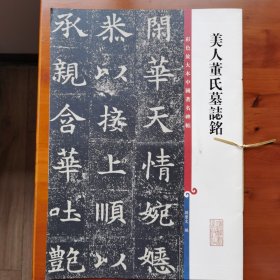 美人董氏墓誌銘
彩色放大本中國著名碑帖
孫寶文 編
閑華天情婉嬺
恭以接上順以
承親含華吐艷